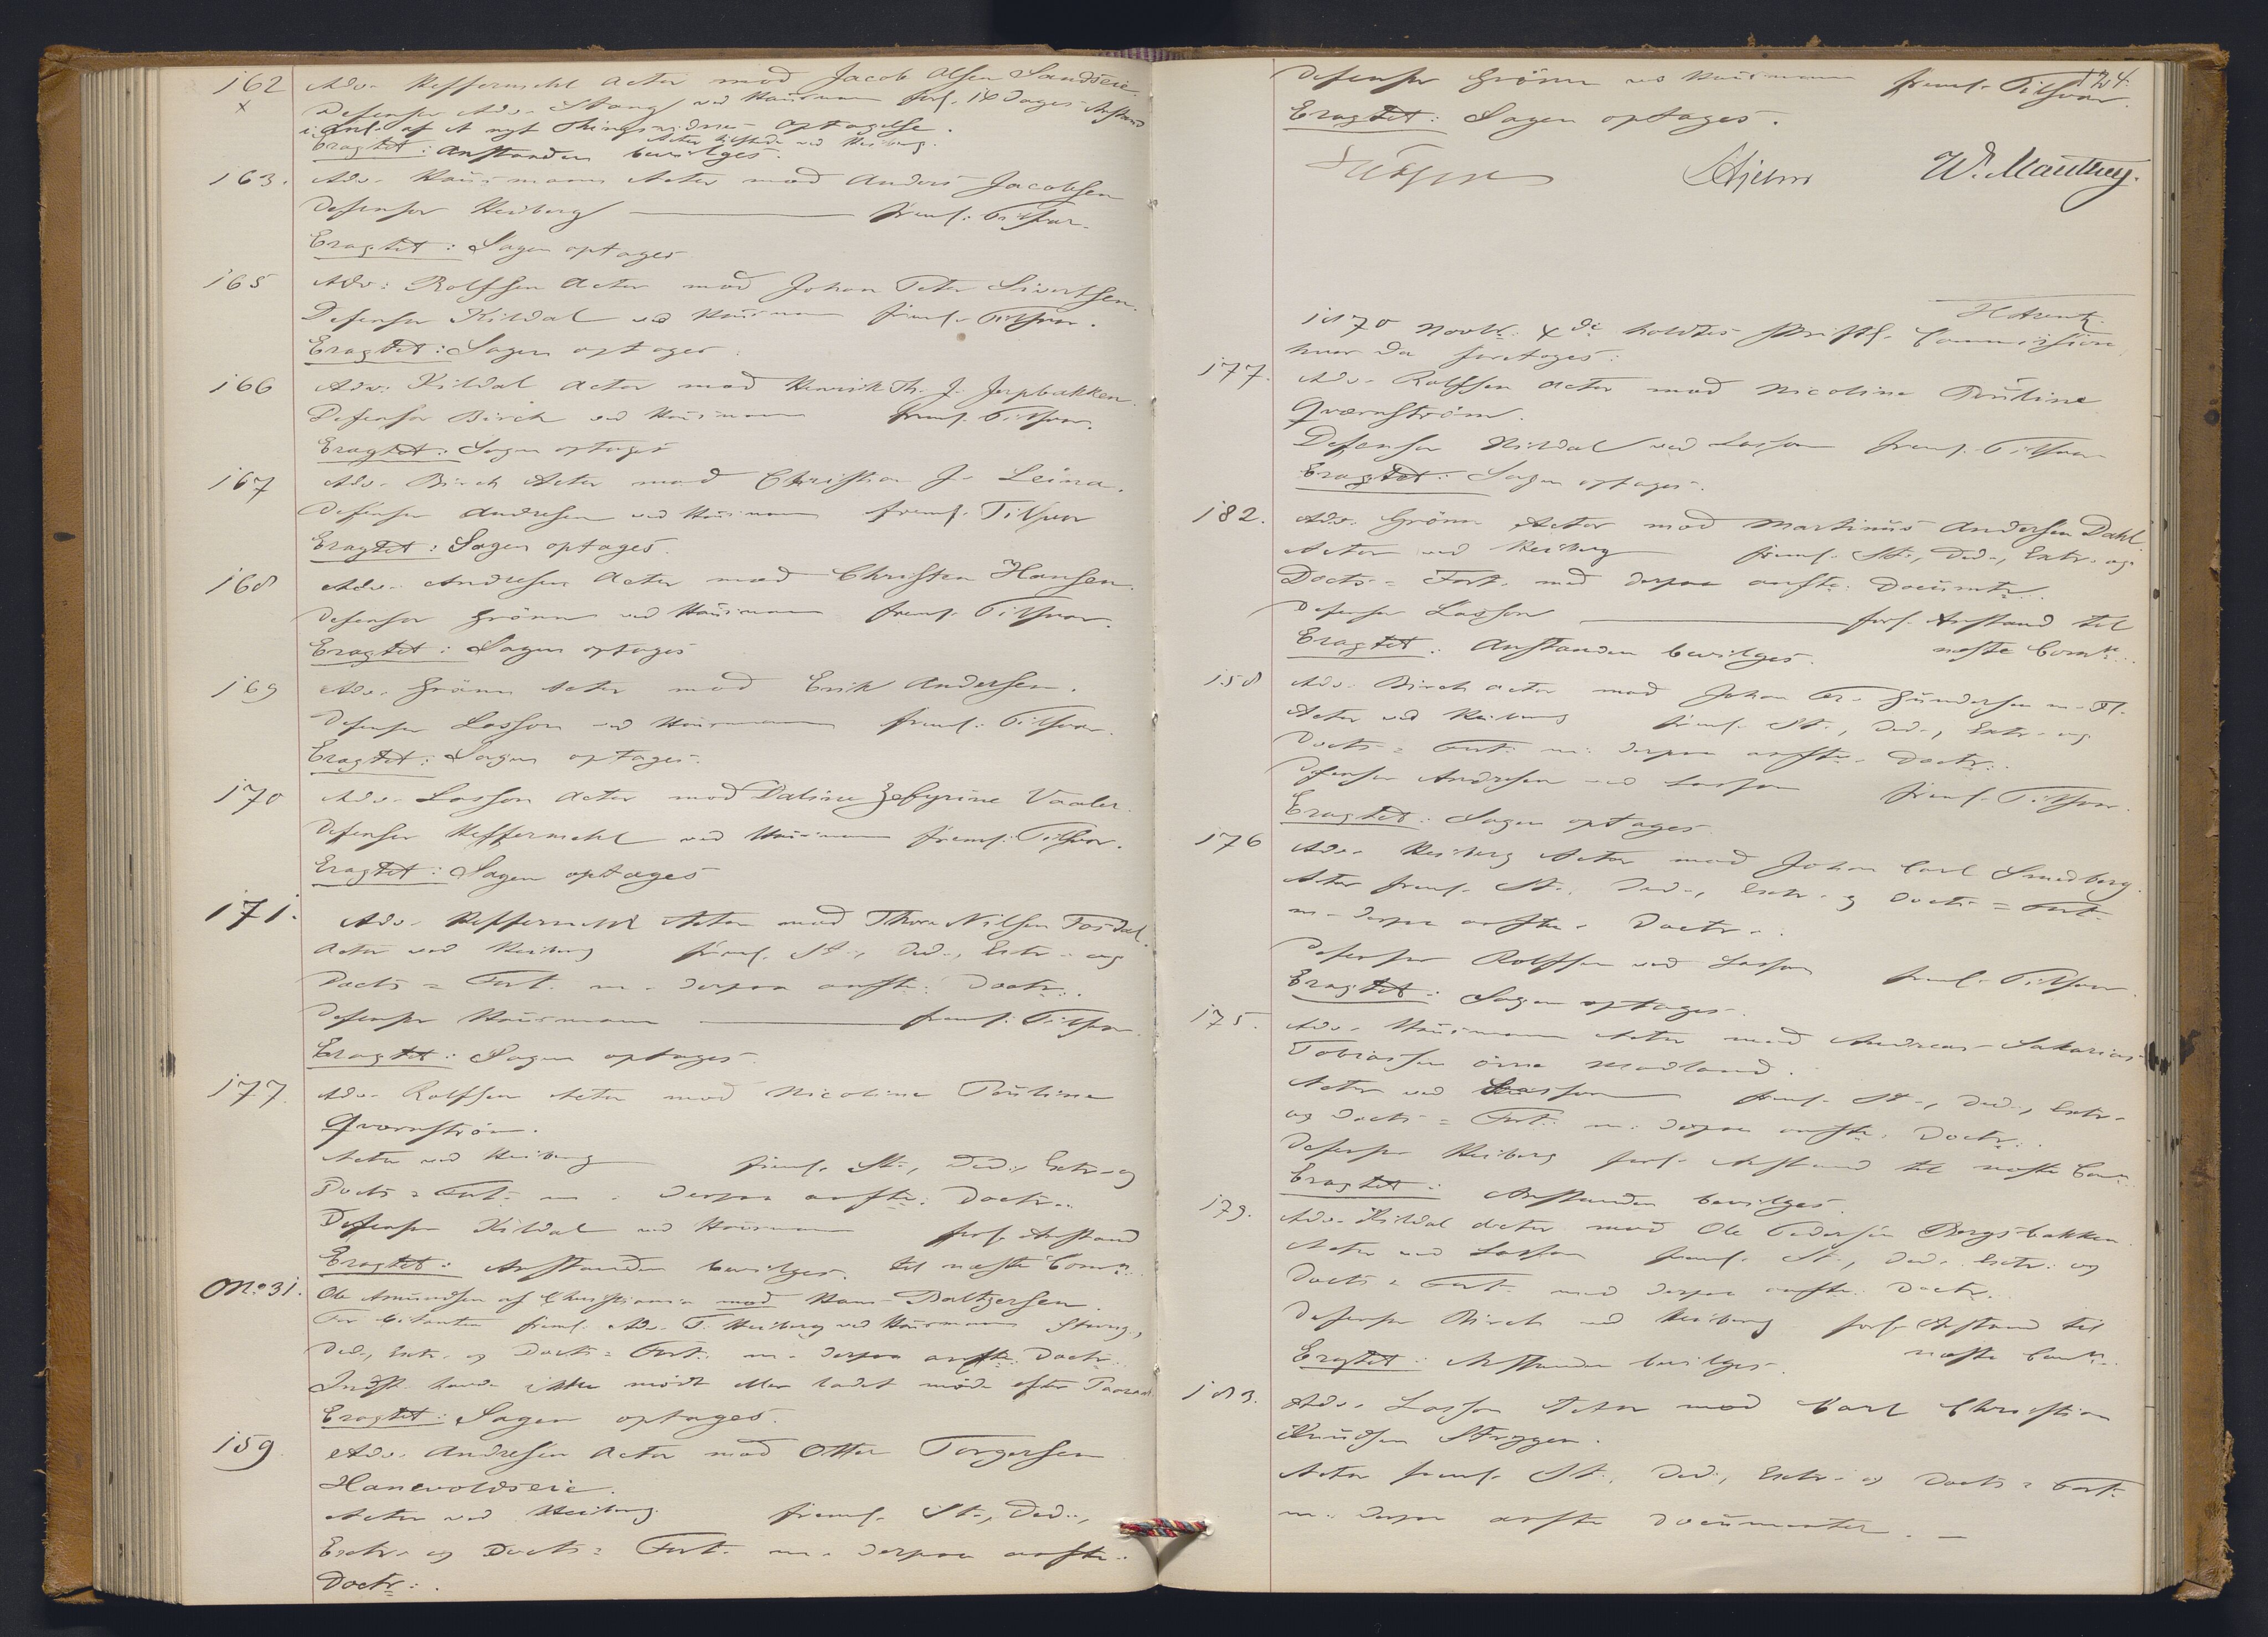 162 Adv. Heffermehl Actor mod Jacob Olsen Sandseie.
x Defensor Adv. Stang ved Hausmann forl. 14 Dages Anstand
i Anl. af et nyt Thingsvidnes Optagelse.
Actor tilstede ved Heiberg.
Eragtet: Anstanden bevilges.
163. Adv. Hausmann Actor mod Anders Jacobsen
Defensor Heiberg freml. Tilsvar.
Eragtet: Sagen optages
165 Adv. Rolfsen Actor mod Johan Peter Sivertsen.
Defensor Kildal ved Hausmann freml. Tilsvar.
Eragtet: Sagen optages.
166 Adv. Kildal Actor mod Henrik Th. J. Jerpbakken.
Defensor Birch ved Hausmann freml. Tilsvar.
Eragtet: Sagen optages
167 Adv. Birch Actor mod Christian J. Leina.
Defensor Andresen ved Hausmann freml. Tilsvar
Eragtet: Sagen optages.
168 Adv. Andresen Actor mod Christen Hansen.
Defensor Grönn ved Hausmann freml. Tilsvar.
Eragtet: Sagen optages
169 Adv. Grönn Actor mod Erik Andersen.
Defensor Lasson ved Hausmann freml. Tilsvar.
Eragtet: Sagen optages.
170 Adv. Lasson Actor mod Daline Zefyrine Vaaler.
Defensor Heffermehl ved Hausmann freml. Tilsvar.
Eragtet: Sagen optages
171. Adv. Heffermehl Actor mod Thore Nilsen Fosdal.
Actor ved Heiberg freml. St., Ded., Extr. og
Docts = Fort. m. derpaa anfte. Doctr.
Defensor Hausmann freml. Tilsvar.
Eragtet: Sagen optages.
177. Adv. Rolfsen Actor mod Nicoline Pauline
Qvernström.
Actor ved Heiberg freml. St., Ded., Extr. og
Docts = Fort. m. derpaa anfte. Doctr.
Defensor Kildal ved Hausmann forl. Anstand
Eragtet: Anstanden bevilges. til næste Comn.
No. 31. Ole Amundsen af Christiania mod Hans Baltzersen.
For Citanten freml. Adv. T. Heiberg ved Hausmann Stevng.,
Ded., Extr. og Docts = Fort. m. derpaa anfte. Doctr.
Indst. havde ikke mödt eller ladet möde efter Paaraab.
Eragtet: Sagen optages.
159. Adv. Andresen Actor mod Otter Torgersen
Hanevoldseie.
Actor ved Heiberg freml. St., Ded.,
Extr. og Docts = Fort. m. derpaa anfte.
Doctr.
124.
Defensor Grönn ved Hausmann freml. Tilsvar.
Eragtet: Sagen optages.
Hjelm W. Manthey.
1870 Novbr. 4de holdtes skriftl. Commission,
hvor da foretoges:
177. Adv. Rolfsen Actor mod Nicoline Pauline
Qvernström.
Defensor Kildal ved Lasson freml. Tilsvar
Eragtet: Sagen optages.
182. Adv. Grönn Actor mod Martinus Andersen Dahl.
Actor ved Heiberg freml. St., Ded., Extr. og
Docts = Fort. med derpaa anfte. Documtr.
Defensor Lasson forl. Anstand til
Eragtet: Anstanden bevilges. næste Comn.
158 Adv. Birch Actor mod Johan Gundersen m. Fl.
Actor ved Heiberg freml. St., Ded., Extr. og
Docts = Fort. m. derpaa anfte. Doctr.
Defensor Andresen ved Lasson freml. Tilsvar.
Eragtet: Sagen optages.
176 Adv. Heiberg Actor mod Johan Carl Smedberg.
Actor freml. St., Ded., Extr. og Docts = Fort.
m. derpaa anfte. Doctr.
Defensor Rolfsen ved Lasson freml. Tilsvar.
Eragtet: Sagen optages.
175. Adv. Hausmann Actor mod Andreas Sakarias
Tobiassen Madland.
Actor ved Lasson freml. St., Ded., Extr.
og Docts = Fort. m. derpaa anfte. Doctr.
Defensor Heiberg forl. Anstand til næste Comn.
Eragtet: Anstanden bevilges.
179. Adv. Kildal Actor mod Ole Pedersen Bergsbakken.
Actor ved Lasson freml. St., Ded., Extr. og
Docts = Fort. med derpaa anfte. Doctr.
Defensor Birch ved Heiberg forl. Anstand til
Eragtet: Anstanden bevilges. næste Comn.
183. Adv. Lasson Actor mod Carl Christian
Knudsen Skriggen.
Actor freml. St., Ded., Extr. og Docts = Fort.
m. derpaa anfte Documenter. —